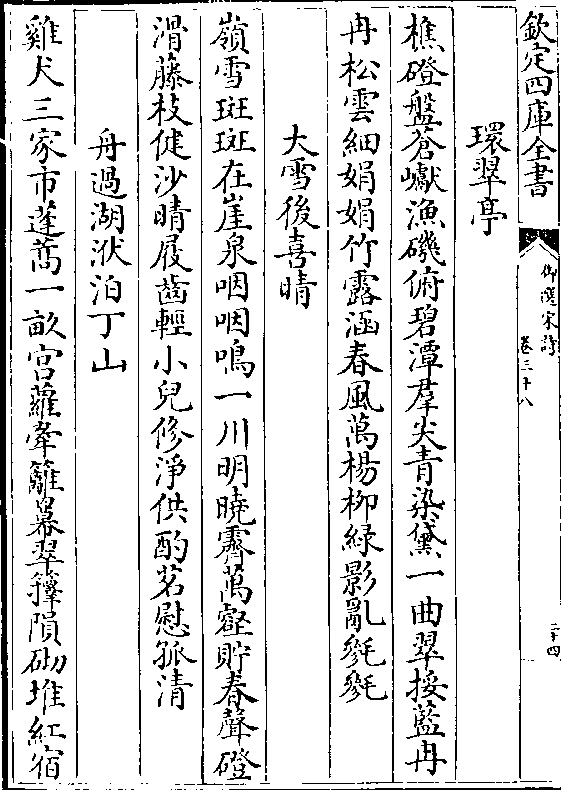 欽定四庫全書
御選宋詩
卷三十八
二十四
環翠亭
樵磴盤蒼巘漁磯俯碧潭羣尖青染黛一曲翠挼藍冉
冉松雲細娟娟竹露涵春風萬楊柳緑影亂毿毿
大雪後喜晴
嶺雪斑斑在崖泉咽咽鳴一川明曉霽萬壑貯春聲磴
滑藤枝健沙晴屐齒輕小兒修淨供酌茗慰孤清
舟過湖洑泊丁山
雞犬三家市蓬蒿一畝宫蘿牽籬幕翠籜隕砌堆紅宿